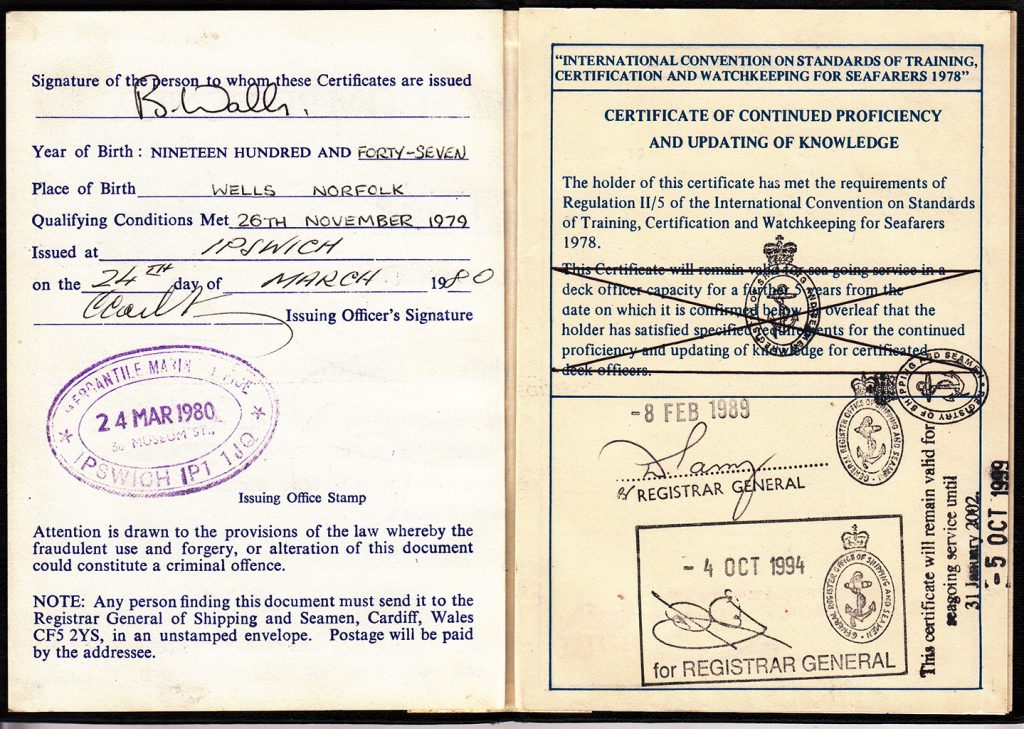 Signature of the person to whom these Certificates are issued
B. Walls.
Year of Birth : NINETEEN HUNDRED AND FORTY-SEVEN
Place of Birth WELLS NORFOLK
Qualifying Conditions Met 26TH NOVEMBER 1979
Issued at IPSWICH
on the 24TH day of MARCH 1980
Issuing Officer's Signature
MERCANTILE MARIN
24 MAR 1980
MUSEUM ST.,
IPSWICH IP1 1JQ
Issuing Office Stamp
Attention is drawn to the provisions of the law whereby the
fraudulent use and forgery, or alteration of this document
could constitute a criminal offence.
NOTE: Any person finding this document must send it to the
Registrar General of Shipping and Seamen, Cardiff, Wales
CF5 2YS, in an unstamped envelope. Postage will be paid
by the addressee.
"INTERNATIONAL CONVENTION ON STANDARDS OF TRAINING,
CERTIFICATION AND WATCHKEEPING FOR SEAFARERS 1978"
CERTIFICATE OF CONTINUED PROFICIENCY
AND UPDATING OF KNOWLEDGE
The holder of this certificate has met the requirements of
Regulation II/5 of the International Convention on Standards
of Training, Certification and Watchkeeping for Seafarers
1978.
This Certificate will remain valid for sea going service in a
deck officer capacity for a further 5 years from the
date on which it is confirmed below overleaf that the
holder has satisfied specified requirements for the continued
proficiency and updating of knowledge for certificated
deck officers.
REGISTRY OF SHIPPING AND SEAMEN
REGISTRY OF SHIPPING AND SEAMEN
-8 FEB 1989
GENERAL REGISTER OFFICE OF SHIPPING AND SEAMEN
REGISTRAR GENERAL
- 4 OCT 1994
GENERAL REGISTER OFFICE OF SHIPPING AND SEAMEN
for REGISTRAR GENERAL
This certificate will remain valid for
seagoing service until
31 January 2002.
- 5 OCT 1999